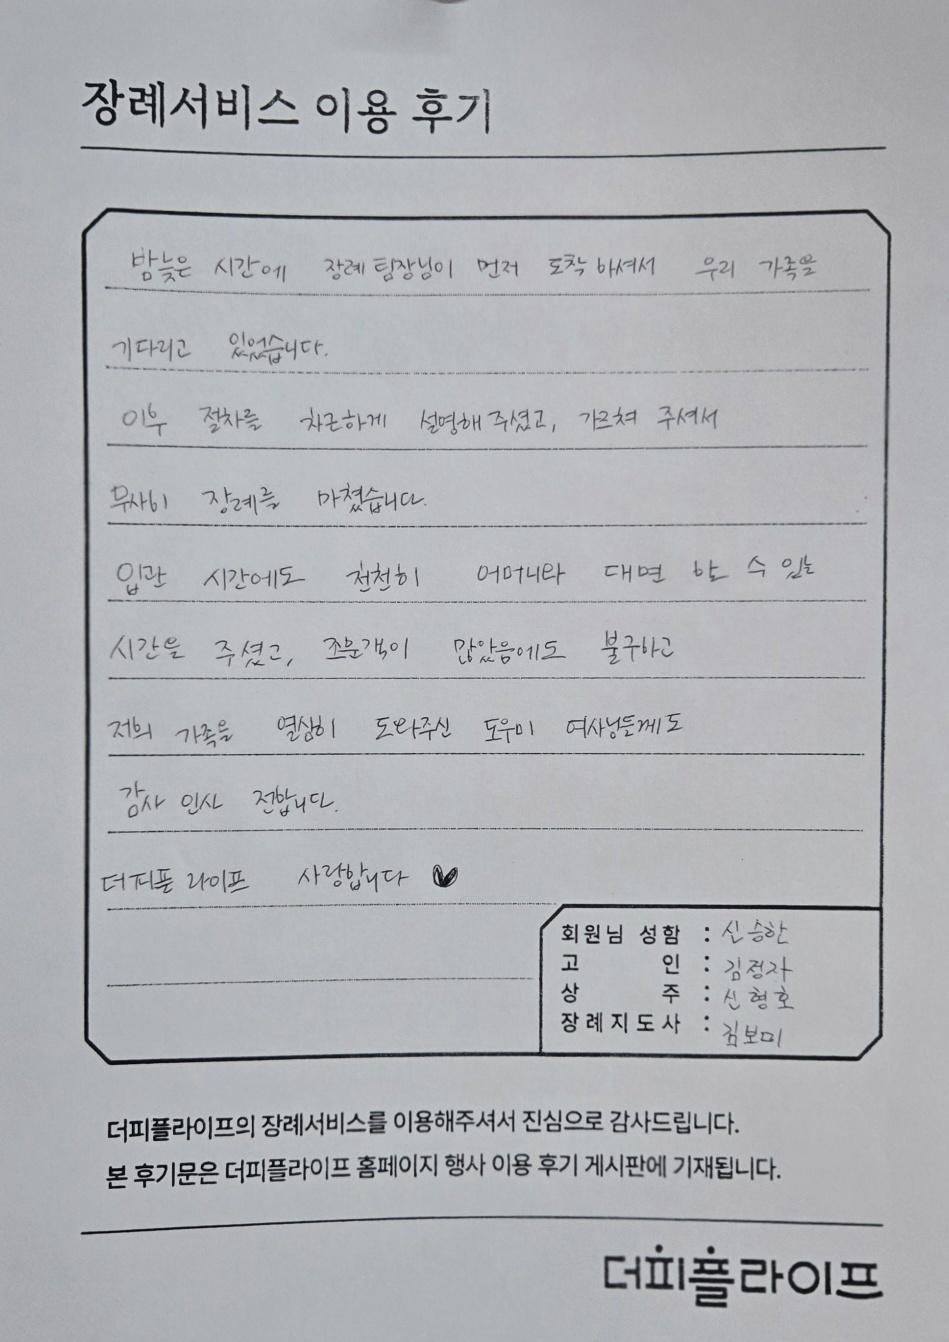 장례서비스 이용 후기
밤늦은 시간에 장례 팀장님이 먼저 도착 하셔서 우리 가족을
기다리고 있었습니다.
이후 절차를 차근하게 설명해 주셨고, 가르쳐 주셔서
무사히 장례를 마쳤습니다.
입관 시간에도 천천히 어머니와 대면 할 수 있는
시간을 주셨고, 조문객이 많았음에도 불구하고
저희 가족을 열심히 도와주신 도우미 여사님들께도
감사 인사 전합니다.
더피플 라이프 사랑합니다 ♥
회원님 성함 : 신승한
고 인 : 김정자
상 주 : 신형호
장례지도사 : 김보미
더피플라이프의 장례서비스를 이용해주셔서 진심으로 감사드립니다.
본 후기문은 더피플라이프 홈페이지 행사 이용 후기 게시판에 기재됩니다.
더피플라이프